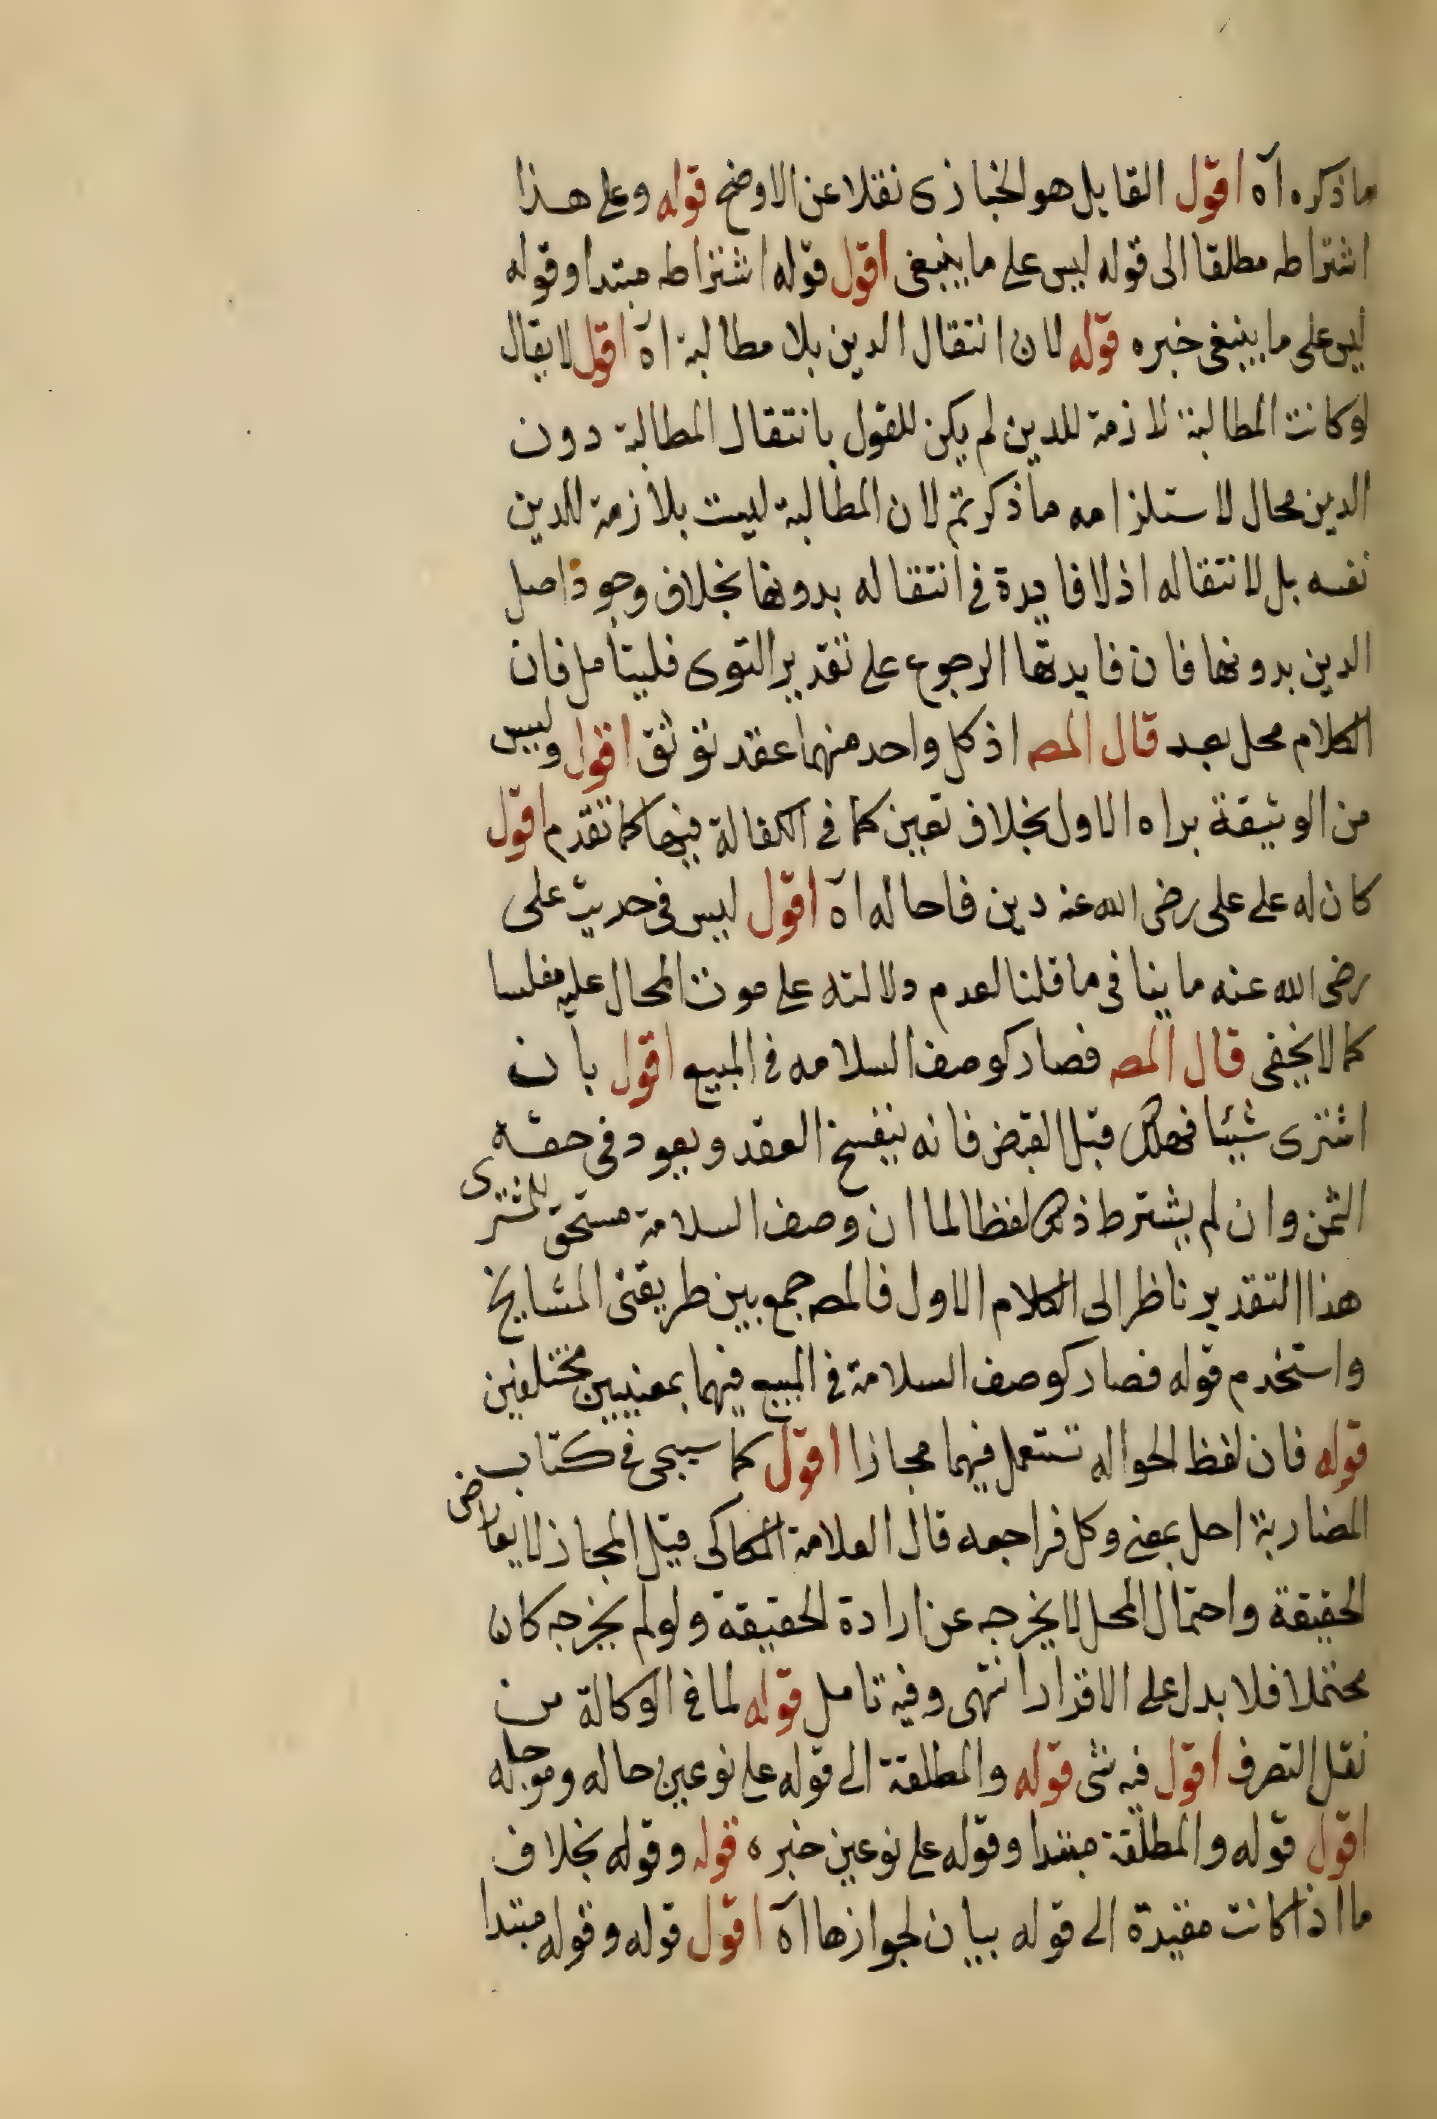 ما ذكره اه اقول القايل هو الخبازى نقلا عن الاوضح قوله وعلى هذا
اشتراطه مطلقا الى قوله ليس على ما ينبغى اقول قوله اشتراطه مبتدا وقوله
ليس على ما ينبغى خبره قوله لان انتقال الدين بلا مطالبة اه اقول لا يقال
لو كانت المطالبة لازمة للدين لم يكن للقول بانتقال المطالبة دون
الدين محال لاستلزامه ما ذكرتم لان المطالبة ليست بلازمة للدين
نفسه بل لانتقاله اذ لا فايدة فى انتقاله بدونها بخلاف وجود اصل
الدين بدونها فان فايدتها الرجوع على تقدير التوى فليتأمل فان
الكلام محل بعد قال المص اذ كل واحد منهما عقد توثق اقول وليس
من الوثيقة براه الاول بخلاف تعين كما فى الكفالة فيها كما تقدم اقول
كان له على على رضى الله عنه دين فاحاله اه اقول ليس فى حديث على
رضى الله عنه ما ينافى ما قلنا لعدم دلالته على موت المحال عليه مفلسا
كما لا يخفى قال المص فصار كوصف السلامه فى المبيع اقول بأن
اشترى شيئا فهلك قبل القبض فانه ينفسخ العقد ويعود فى حقه
الثمن وان لم يشترط ذلك لفظا لما ان وصف السلامة مستحق للمشترى
هذا التقدير ناظر الى الكلام الاول فالمص جمع بين طريقتى المشايخ
واستخدم قوله فصار كوصف السلامة فى المبيع فيهما بمعنيين مختلفين
قوله فان لفظ الحواله تستعمل فيهما مجازا اقول كما سيجى فى كتاب
المضاربة احل بمعنى وكل فراجعه قال العلامة الكاكى قيل المجاز لا يعارض
الحقيقة واحتمال المحل لا يخرجه عن ارادة الحقيقة ولو لم يخرجه كان
محتملا فلا يدل على الاقرار انتهى وفيه تامل قوله لما فى الوكالة من
نقل التصرف اقول فيه شى قوله والمطلقة الى قوله على نوعين حاله وموجله
اقول قوله والمطلقة مبتدا وقوله على نوعين خبره قوله وقوله بخلاف
ما اذا كانت مقيدة الى قوله بيان لجوازها اه اقول قوله وقوله مبتدا